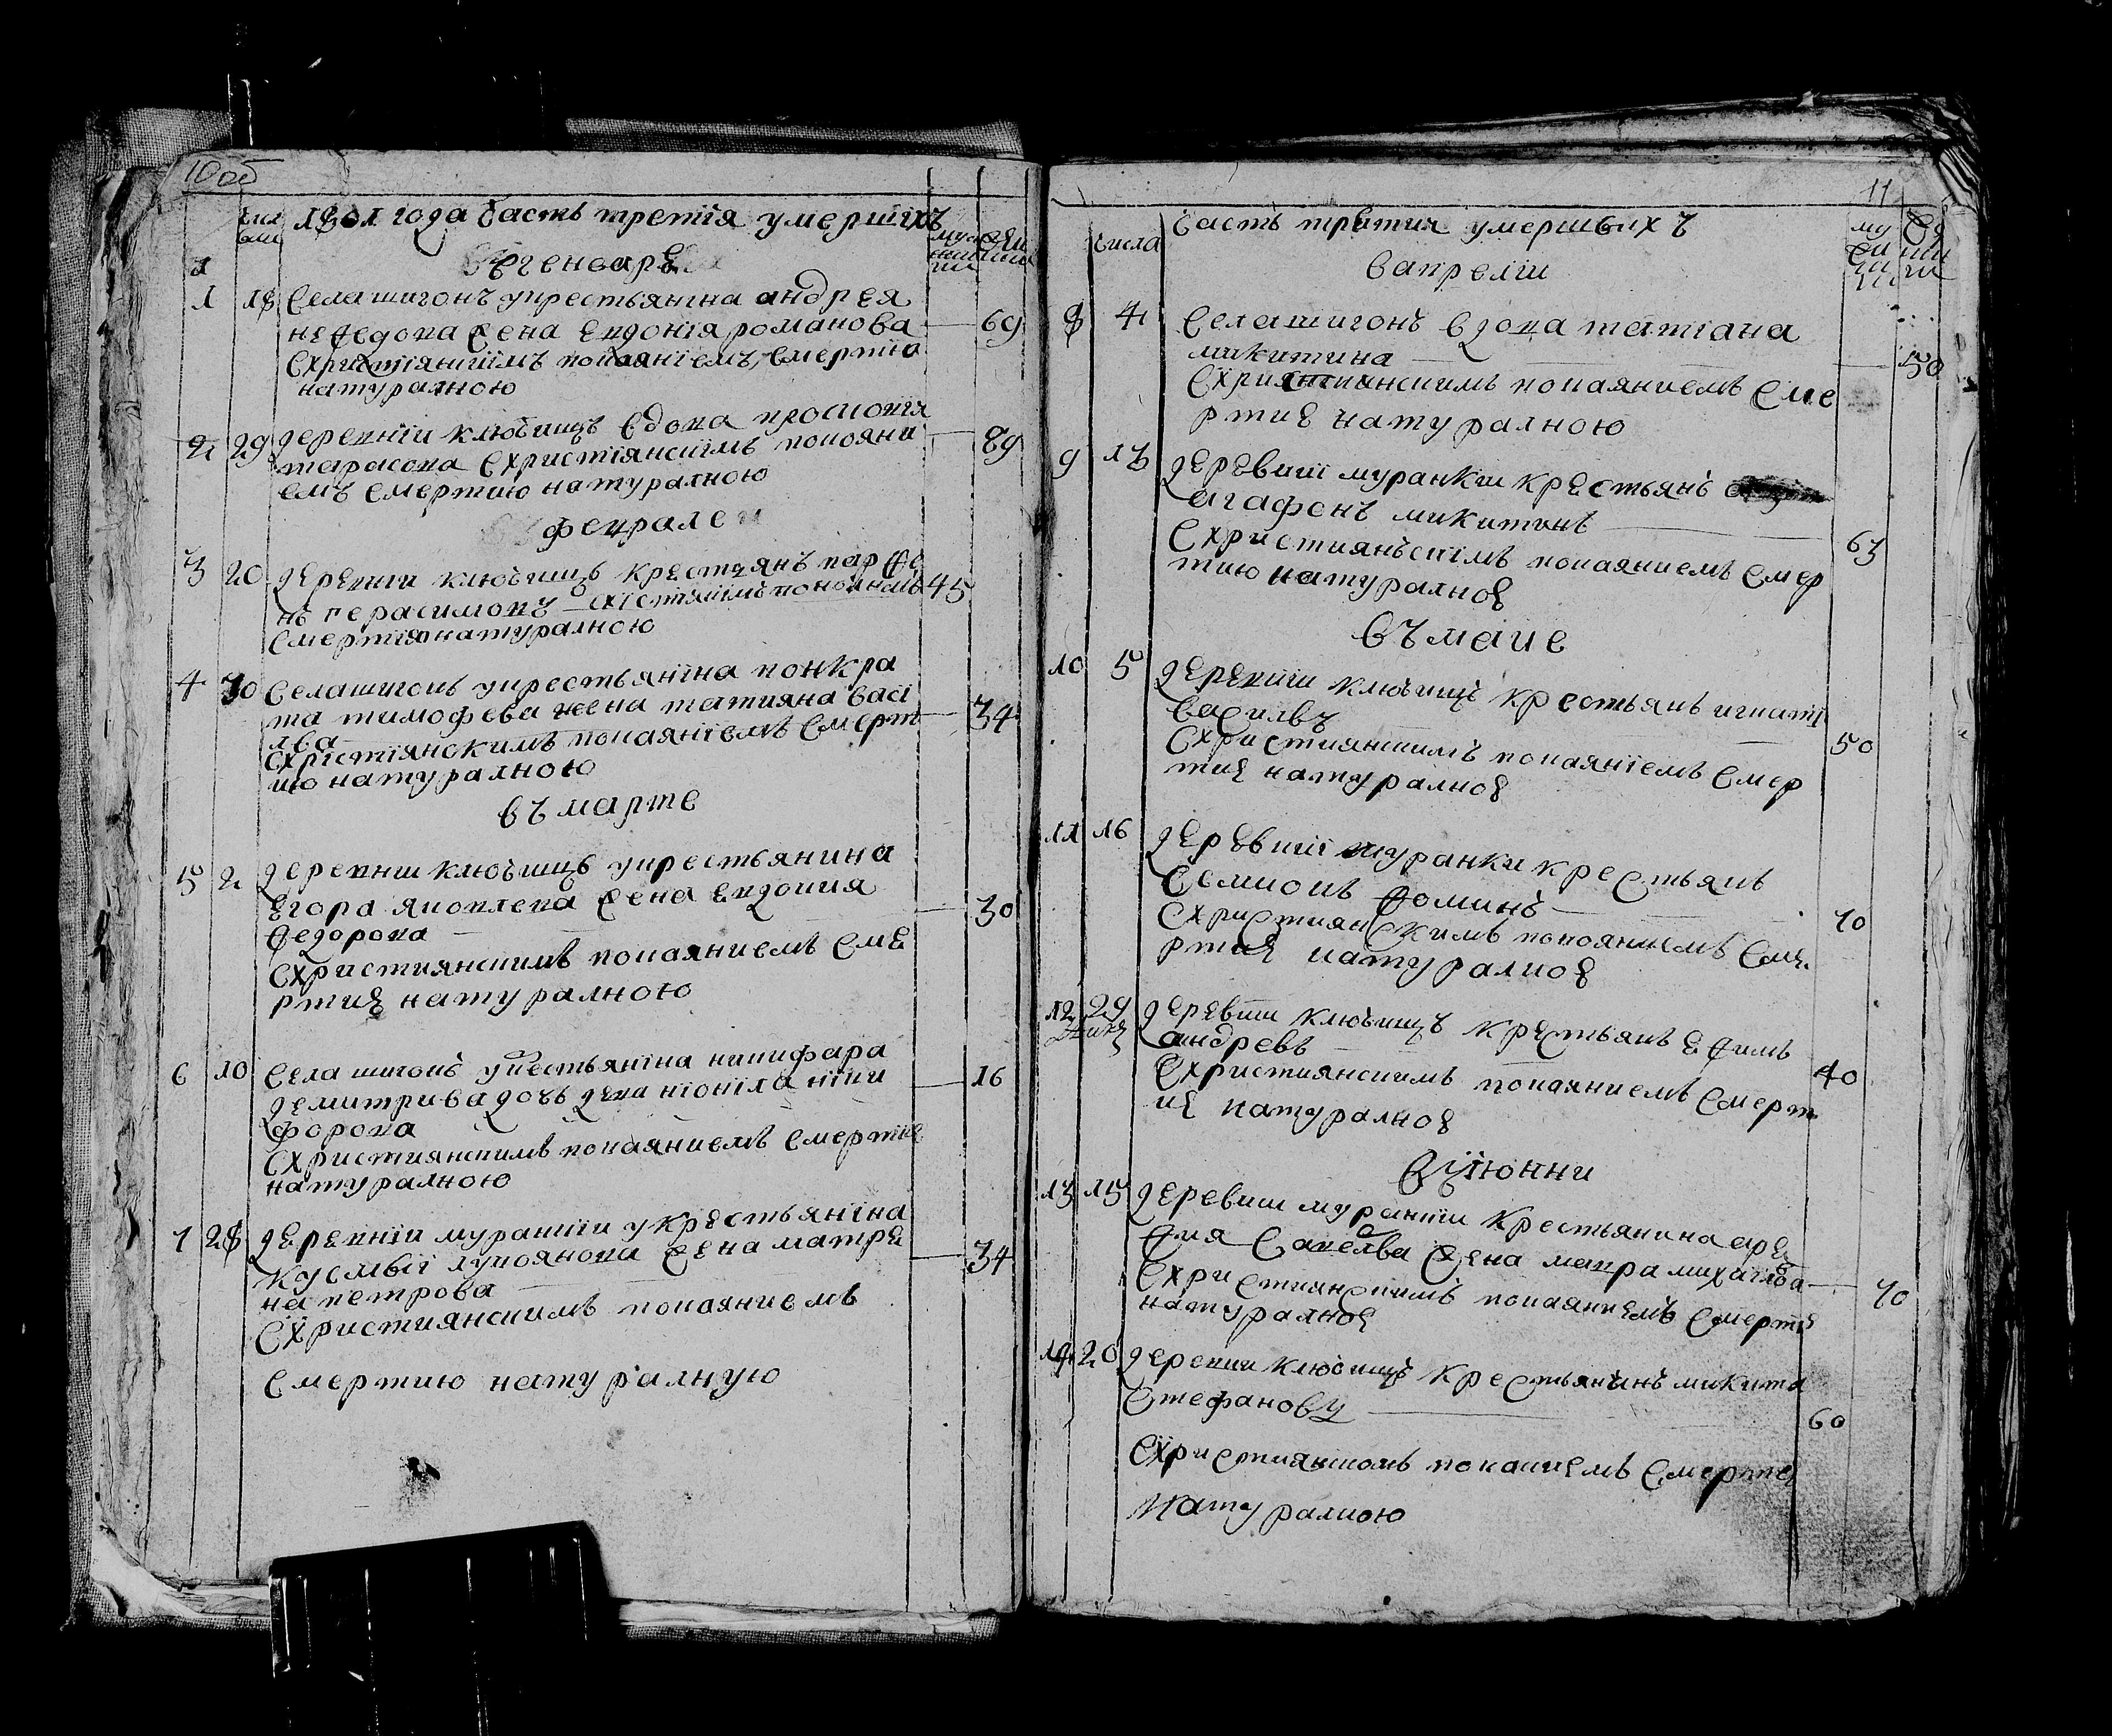 10 об
числа 1801 года часть третія умершихъ
мужески женски
въ генваре
1 18 села шигонъ у крестьянина андрея
нефедова жена евдокія романова 69
схристіянскимъ покаяніемъ, смертію
натуралною
2 29 деревніи ключищъ вдова просковія
тарасова схристіянскимъ покояни 89
емъ смертию натуралною
феврале
3 20 деревни ключищъ крестянъ парфе
нъ герасимовъ 45
смертія натуралною
4 30 села шигонъ у крестьяніна понкра
та тимофева жена татияна васі 34
лва
схрістіянскимъ покаяніемъ смерт
ию натуралною
въ марте
5 2 деревни ключищъ у крестьянина
егора яковлева жена евдокия 30
федорова
схристиянскимъ покаяниемъ сме
ртие натуралною
6 10 села шигонъ у крестьяніна никифара
демитрива дочь дева ніоніла ники 16
форова
схристиянскимъ покаяниемъ смертие
натуралною
7 28 деревніи муранкіи у крестьяніна
кусмыі лукоянова жена матре 34
на петрова
схристиянскимъ покаяниемъ
смертию натуралную
11
числа часть третия умершвихъ
в апрелии
8 4 села шигонъ вдова татіана
микитина 50
схристиянскимъ покаяниемъ сме
ртие натуралною
9 13 деревниі муранкии крестьянъ
агафонъ микитинъ 63
схристиянъскімъ покаяниемъ смер
тию натуралное
въ маие
10 5 деревніи ключищъ крестьянъ игнаті
василвъ 50
схристиянскимъ покаяніемъ смер
тие натуралное
11 16 деревниі муранки крестьянъ
семионъ фоминъ 70
схристиянскимъ покояниемъ сме
ртие натуралное
12 29 деревни ключищъ крестьянъ ефимъ
андревъ 40
схристиянскимъ покаяниемъ смерт
ие натуралное
в июнни
13 15 деревни муранкіи крестьянина аре
фия савелва жена мавра михаілва 70
схристиянскимъ покаяниемъ смерті
натуралное
14 20 деревни ключищъ крестьянинъ микита
стефановъ 60
схристиянскомъ покаиниемъ смертие
натуралною